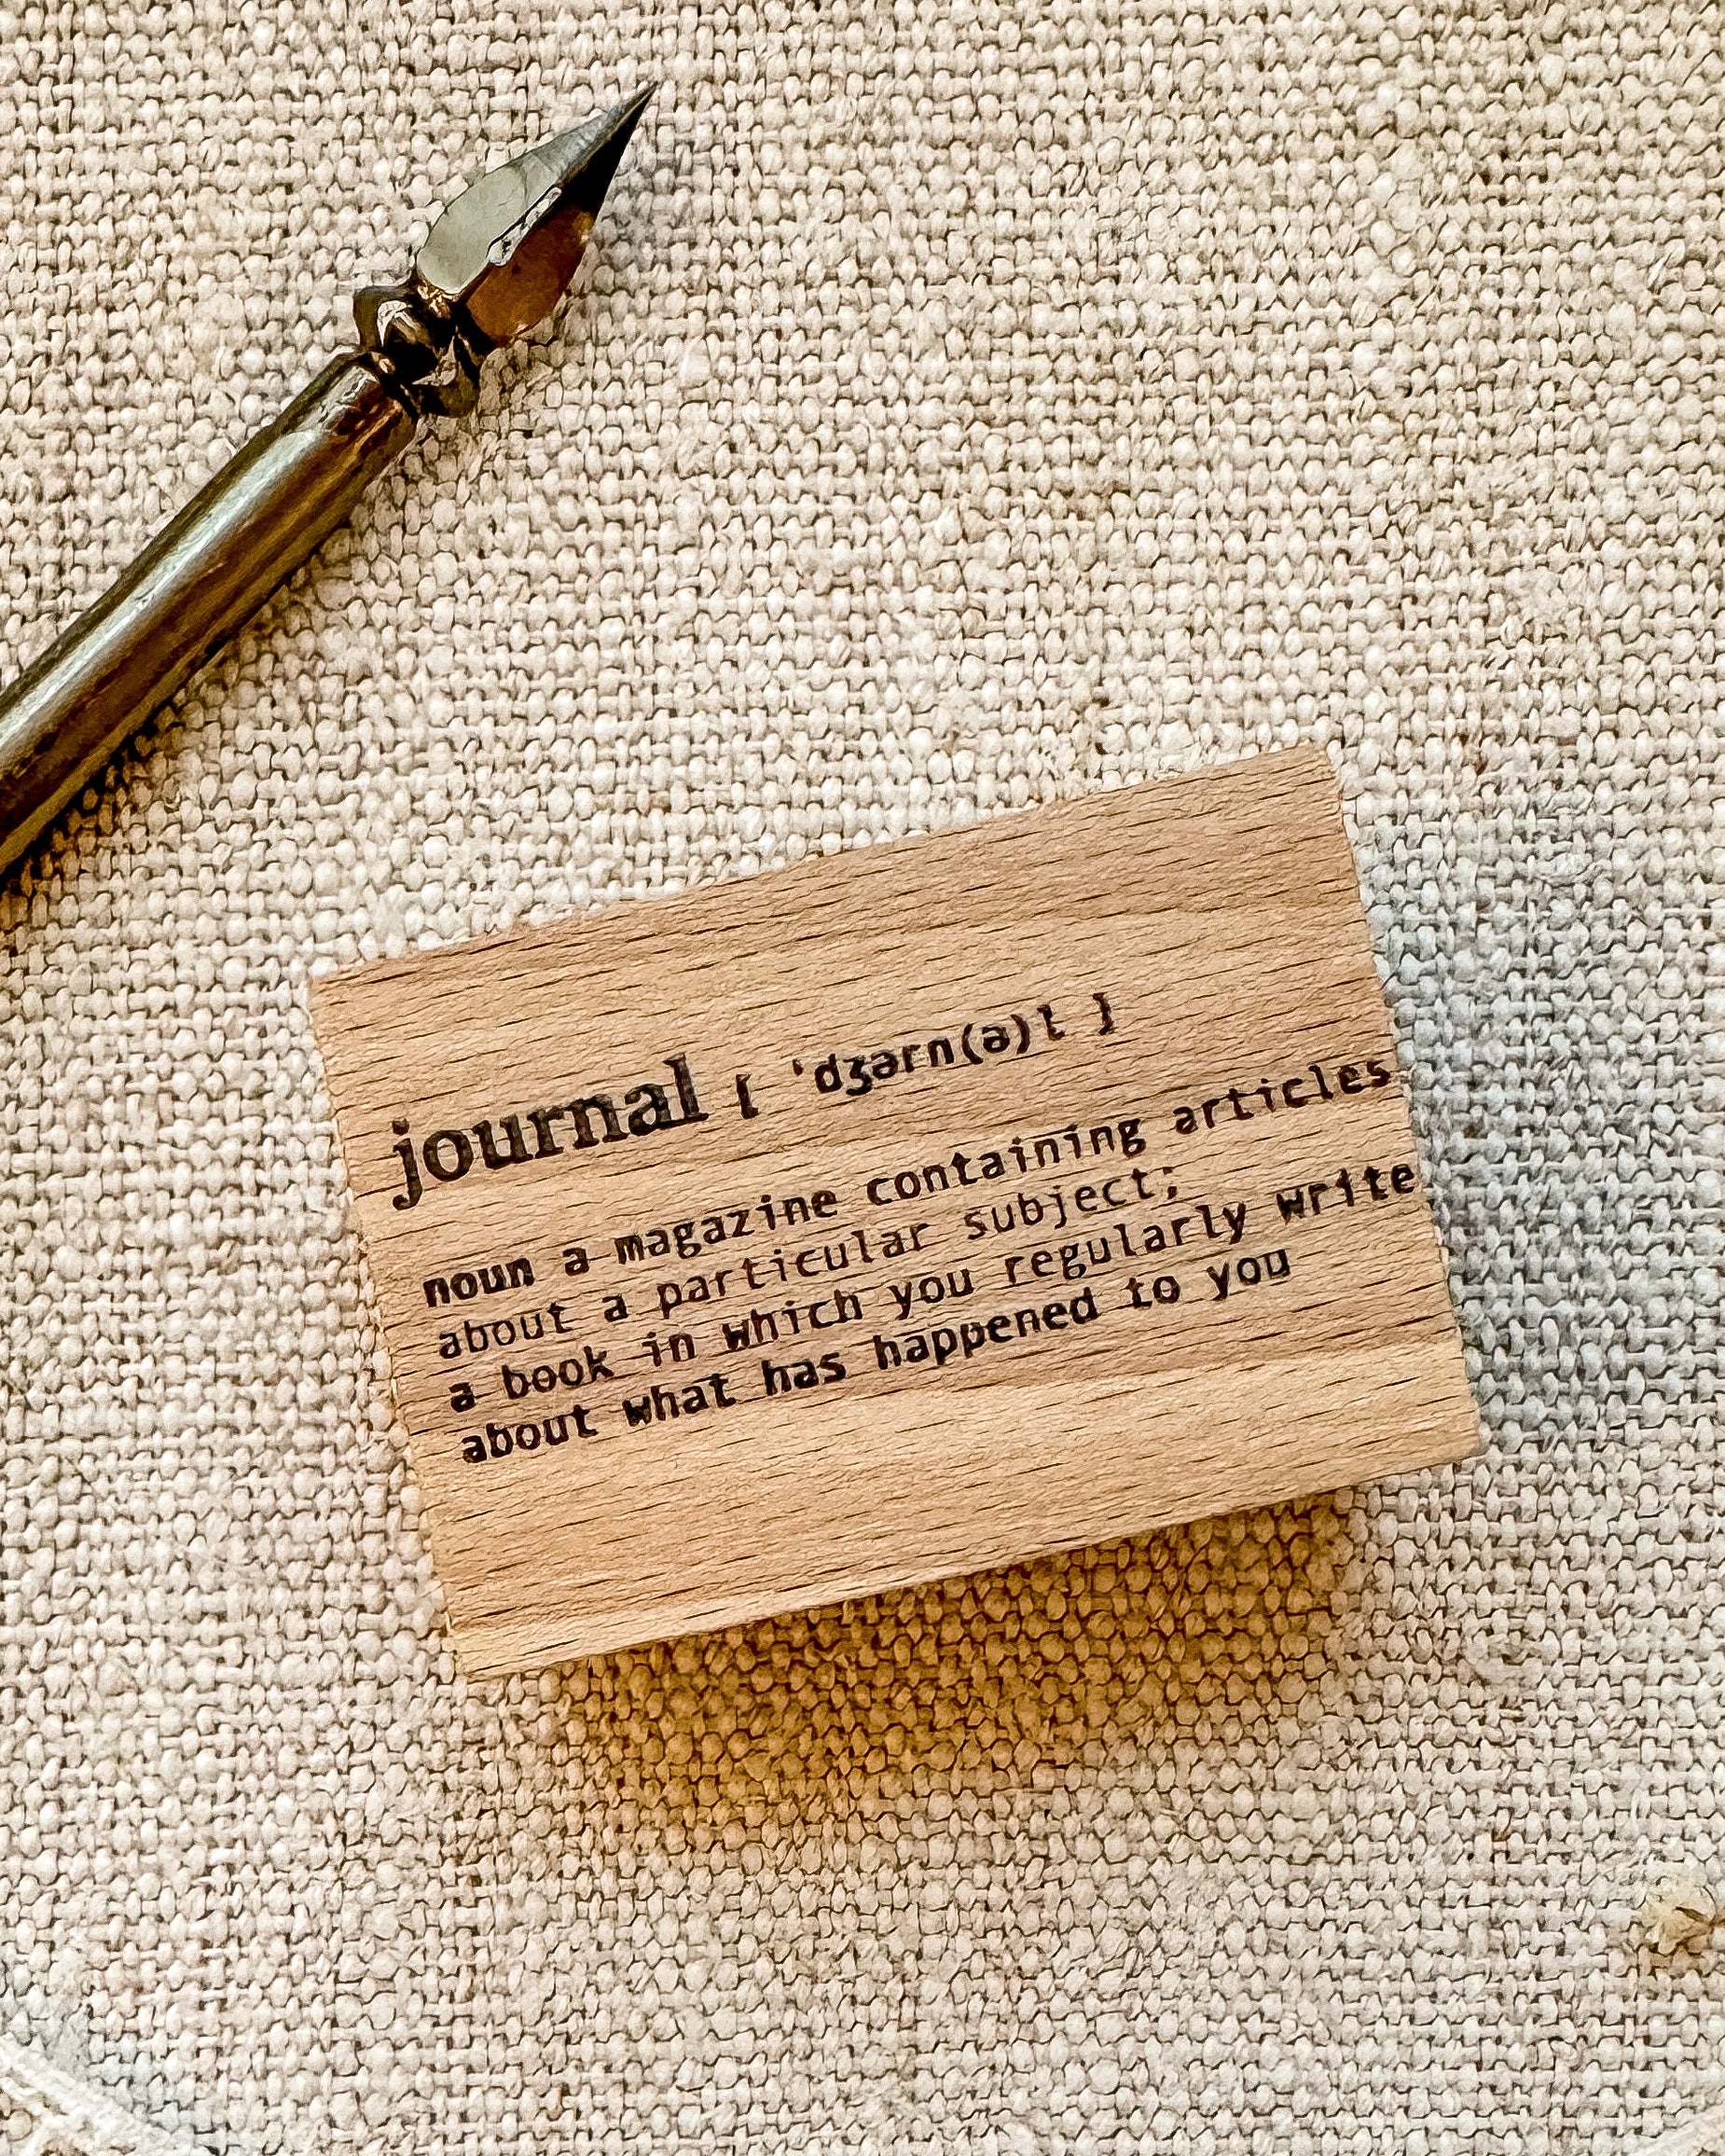 journal [ ˈdʒərn(ə)l ]
noun a magazine containing articles
about a particular subject;
a book in which you regularly write
about what has happened to you